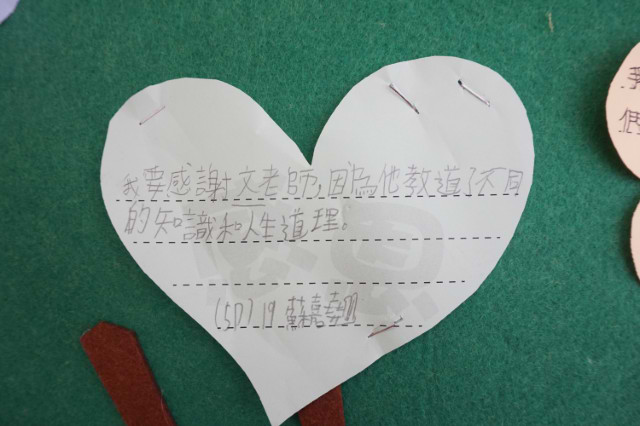 我要感謝文老師,因為他教道了不同
的知識和人生道理。
(5D) 19 蘇嘉
感恩
我
們